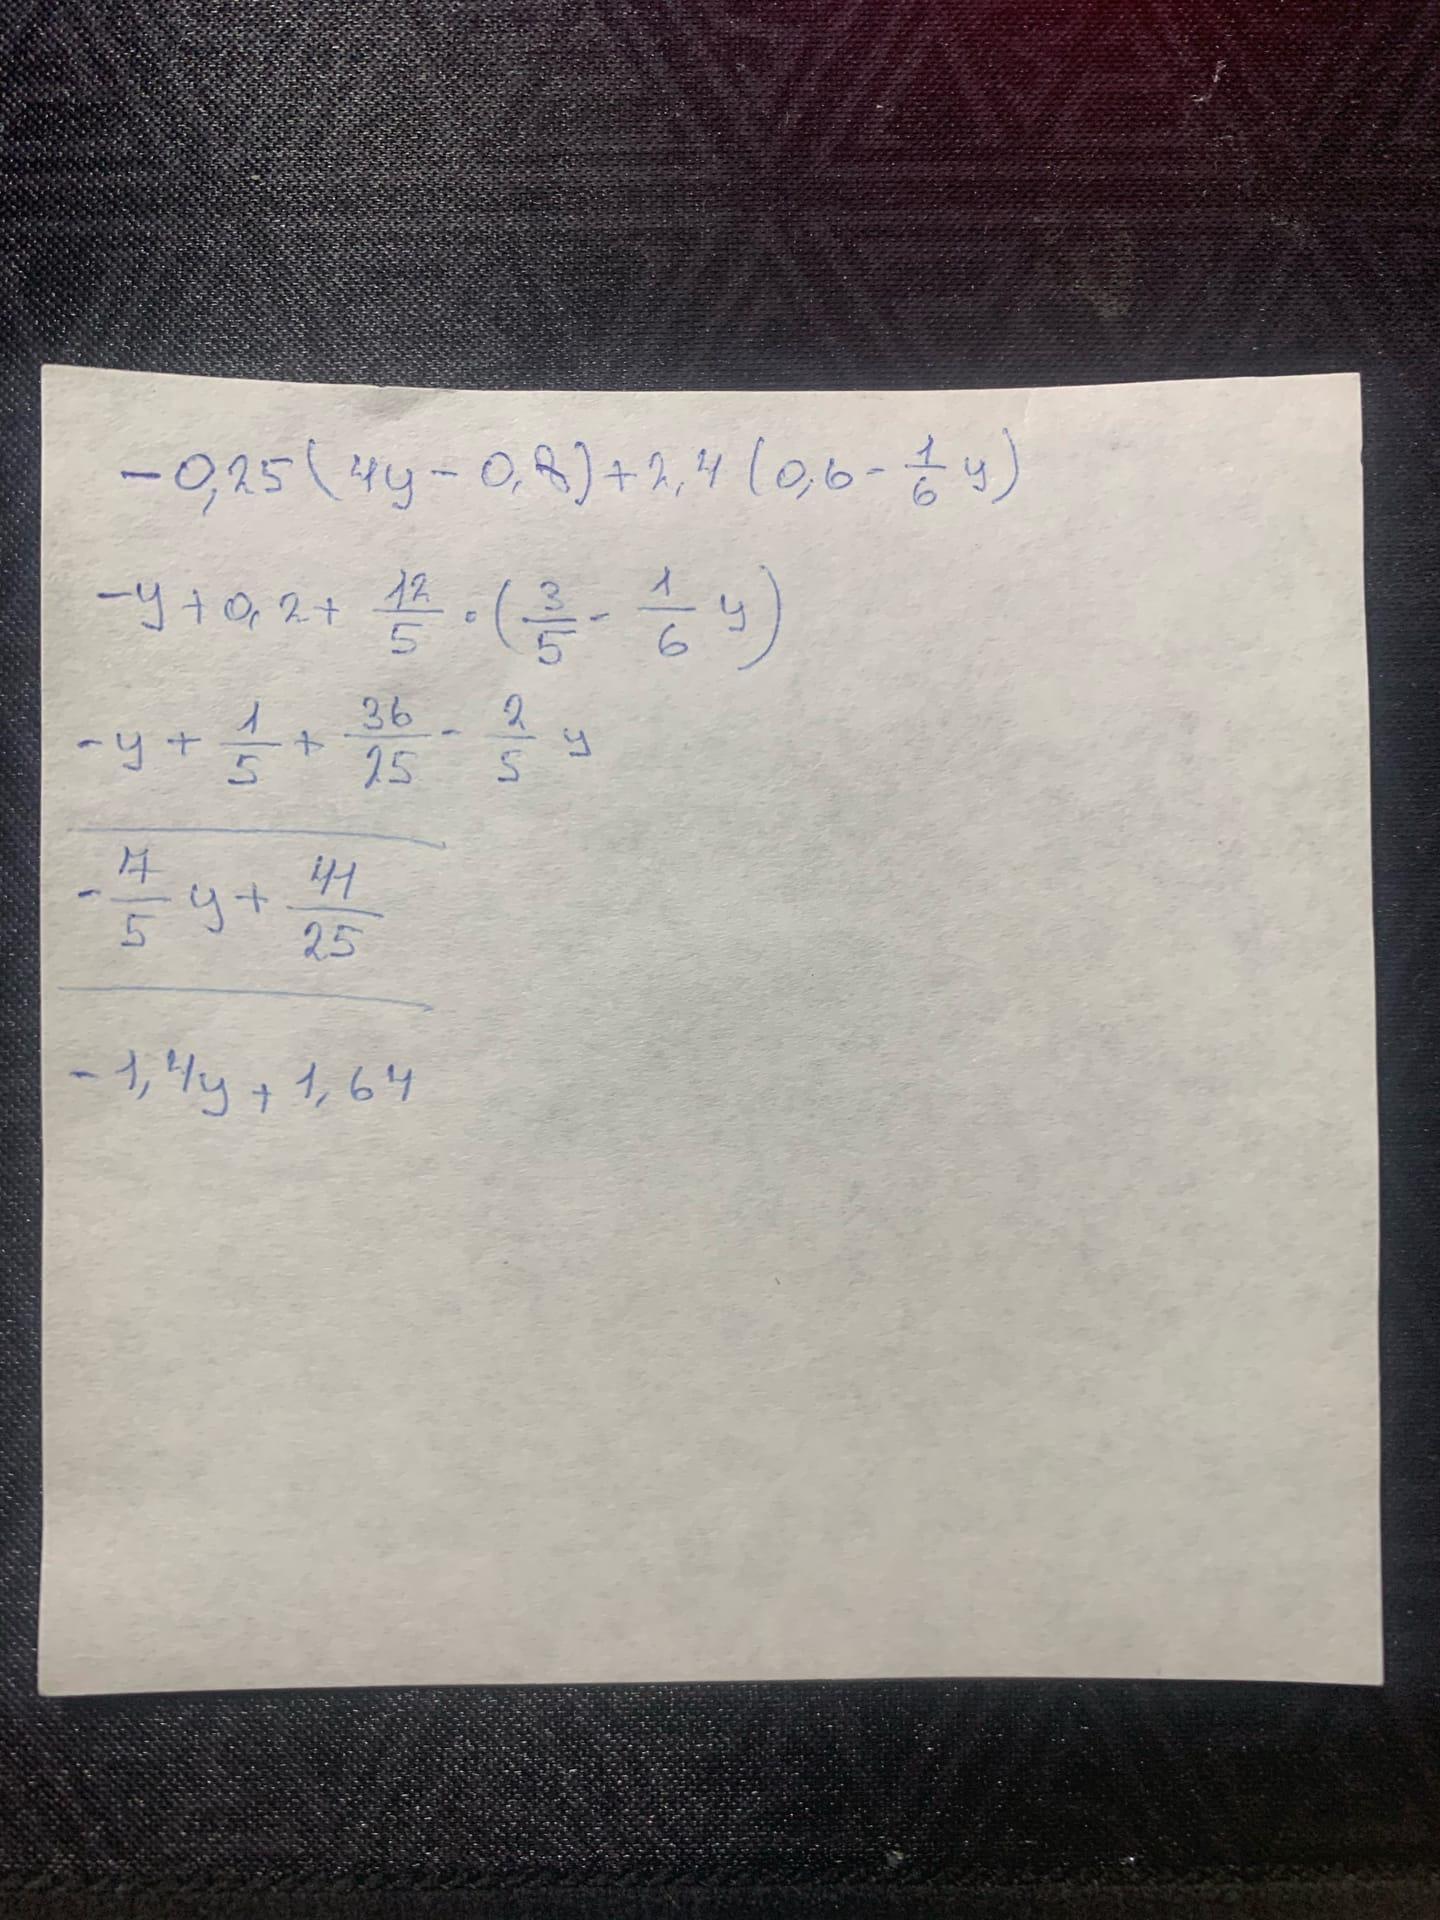 -0,25(4y-0,8)+2,4(0,6-1/6 y)
-y+0,2+12/5·(3/5-1/6 y)
-y+1/5+36/25-2/5 y
-7/5 y+41/25
-1,4y+1,64